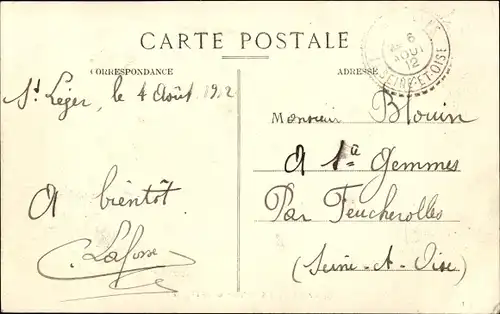 CARTE POSTALE
CORRESPONDANCE
ADRESSE
6
AOUT
12
SEINE-ET-OISE
St Leger, le 4 Août 1912
A bientôt
Lafosse
Monsieur Blouin
A Ste Gemmes
Par Feucherolles
(Seine-et-Oise)